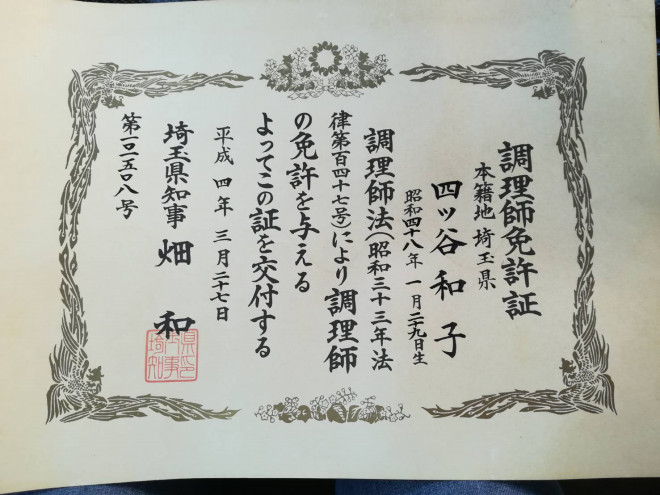 調理師免許証
本籍地 埼玉県
四ッ谷和子
昭和四十八年 一月二九日生
調理師法(昭和三十三年法
律第百四十七号)により調理師
の免許を与える
よってこの証を交付する
平成四年 三月二十七日
埼玉県知事 畑和
第一〇一五〇八号
埼玉県知事印